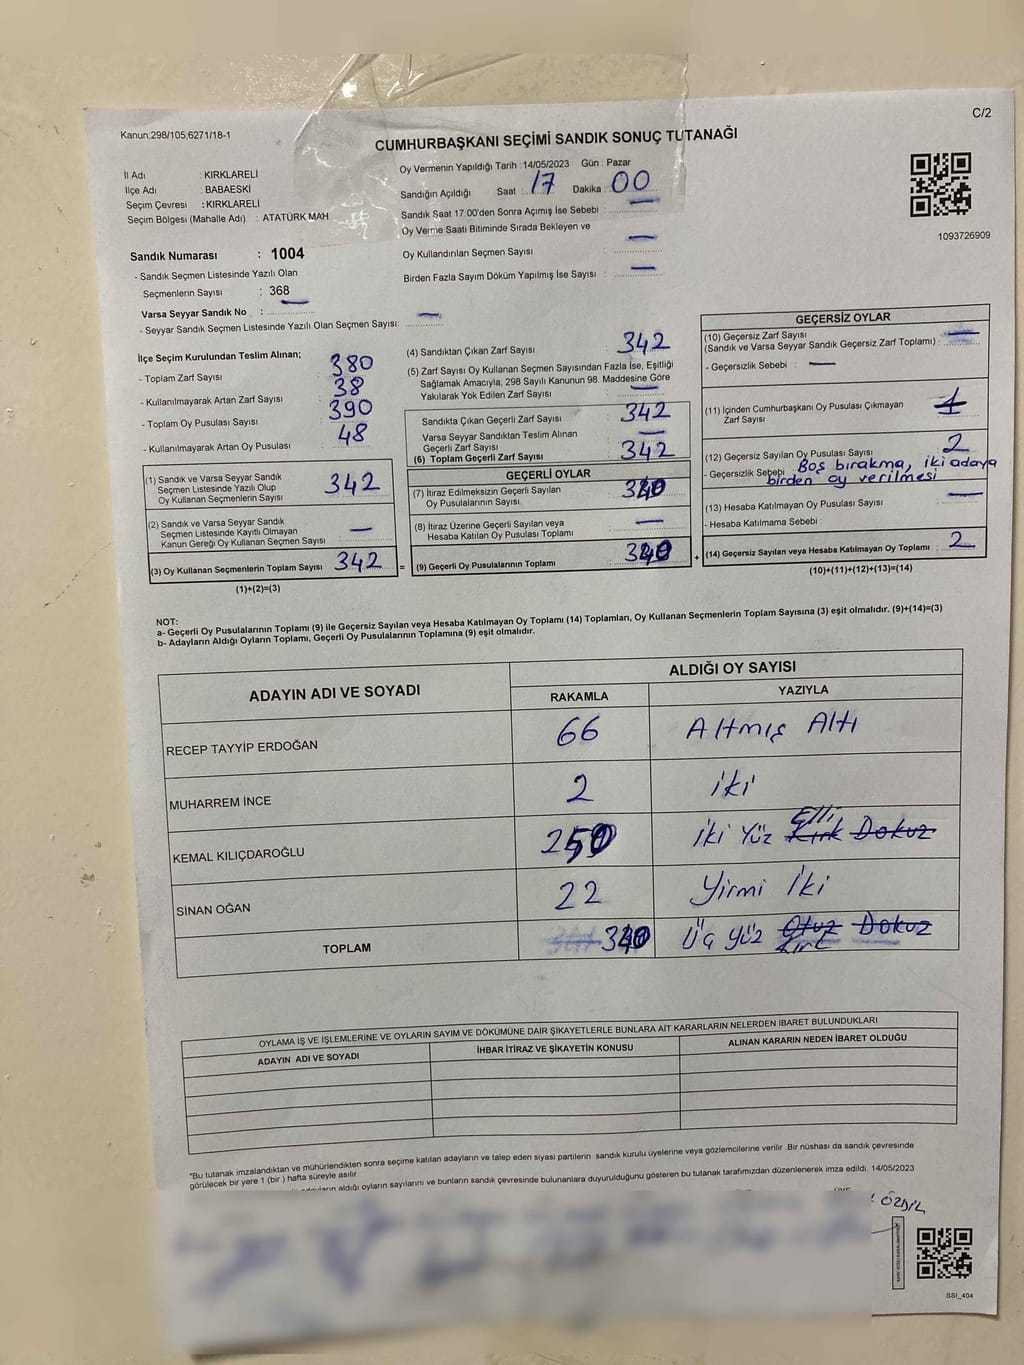 C/2
Kanun:298/105,6271/18-1
CUMHURBAŞKANI SEÇİMİ SANDIK SONUÇ TUTANAĞI
İl Adı : KIRKLARELİ
İlçe Adı : BABAESKİ
Seçim Çevresi : KIRKLARELİ
Seçim Bölgesi (Mahalle Adı) : ATATÜRK MAH
Oy Vermenin Yapıldığı Tarih : 14/05/2023 Gün : Pazar
Sandığın Açıldığı Saat : 17 Dakika : 00
Sandık Saat 17:00'den Sonra Açımış İse Sebebi : —
Oy Verme Saati Bitiminde Sırada Bekleyen ve
Oy Kullandırılan Seçmen Sayısı —
Birden Fazla Sayım Döküm Yapılmış İse Sayısı : —
1093726909
Sandık Numarası : 1004
- Sandık Seçmen Listesinde Yazılı Olan
Seçmenlerin Sayısı : 368
Varsa Seyyar Sandık No : —
- Seyyar Sandık Seçmen Listesinde Yazılı Olan Seçmen Sayısı: —
İlçe Seçim Kurulundan Teslim Alınan;
- Toplam Zarf Sayısı 380
- Kullanılmayarak Artan Zarf Sayısı 38
- Toplam Oy Pusulası Sayısı 390
- Kullanılmayarak Artan Oy Pusulası 48
(1) Sandık ve Varsa Seyyar Sandık
Seçmen Listesinde Yazılı Olup
Oy Kullanan Seçmenlerin Sayısı 342
(2) Sandık ve Varsa Seyyar Sandık
Seçmen Listesinde Kayıtlı Olmayan
Kanun Gereği Oy Kullanan Seçmen Sayısı : —
(3) Oy Kullanan Seçmenlerin Toplam Sayısı 342
(1)+(2)=(3)
=
(4) Sandıktan Çıkan Zarf Sayısı 342
(5) Zarf Sayısı Oy Kullanan Seçmen Sayısından Fazla İse, Eşitliği
Sağlamak Amacıyla, 298 Sayılı Kanunun 98. Maddesine Göre
Yakılarak Yok Edilen Zarf Sayısı —
Sandıkta Çıkan Geçerli Zarf Sayısı 342
Varsa Seyyar Sandıktan Teslim Alınan
Geçerli Zarf Sayısı —
(6) Toplam Geçerli Zarf Sayısı 342
GEÇERLİ OYLAR
(7) İtiraz Edilmeksizin Geçerli Sayılan
Oy Pusulalarının Sayısı : 340
(8) İtiraz Üzerine Geçerli Sayılan veya
Hesaba Katılan Oy Pusulası Toplamı —
(9) Geçerli Oy Pusulalarının Toplamı : 340
+
GEÇERSİZ OYLAR
(10) Geçersiz Zarf Sayısı
(Sandık ve Varsa Seyyar Sandık Geçersiz Zarf Toplamı) : —
- Geçersizlik Sebebi : —
(11) İçinden Cumhurbaşkanı Oy Pusulası Çıkmayan
Zarf Sayısı
(12) Geçersiz Sayılan Oy Pusulası Sayısı 2
- Geçersizlik Sebebi Boş bırakma, iki adaya
birden oy verilmesi
(13) Hesaba Katılmayan Oy Pusulası Sayısı —
- Hesaba Katılmama Sebebi :
(14) Geçersiz Sayılan veya Hesaba Katılmayan Oy Toplamı : 2
(10)+(11)+(12)+(13)=(14)
NOT:
a- Geçerli Oy Pusulalarının Toplamı (9) ile Geçersiz Sayılan veya Hesaba Katılmayan Oy Toplamı (14) Toplamları, Oy Kullanan Seçmenlerin Toplam Sayısına (3) eşit olmalıdır. (9)+(14)=(3)
b- Adayların Aldığı Oyların Toplamı, Geçerli Oy Pusulalarının Toplamına (9) eşit olmalıdır.
ADAYIN ADI VE SOYADI
ALDIĞI OY SAYISI
RAKAMLA YAZIYLA
RECEP TAYYİP ERDOĞAN 66 Altmış Altı
MUHARREM İNCE 2 İki
KEMAL KILIÇDAROĞLU 250 İki Yüz Kırk Dokuz Elli
SİNAN OĞAN 22 Yirmi İki
TOPLAM 340 Üç Yüz Otuz Dokuz Kırk
OYLAMA İŞ VE İŞLEMLERİNE VE OYLARIN SAYIM VE DÖKÜMÜNE DAİR ŞİKAYETLERLE BUNLARA AİT KARARLARIN NELERDEN İBARET BULUNDUKLARI
ADAYIN ADI VE SOYADI İHBAR İTİRAZ VE ŞİKAYETİN KONUSU ALINAN KARARIN NEDEN İBARET OLDUĞU
*Bu tutanak imzalandıktan ve mühürlendikten sonra seçime katılan adayların ve talep eden siyasi partilerin sandık kurulu üyelerine veya gözlemcilerine verilir. Bir nüshası da sandık çevresinde
görülecek bir yere 1 (bir) hafta süreyle asılır.
adayların aldığı oyların sayılarını ve bunların sandık çevresinde bulunanlara duyurulduğunu gösteren bu tutanak tarafımızdan düzenlenerek imza edildi. 14/05/2023
ÖZDİL
SSI_404